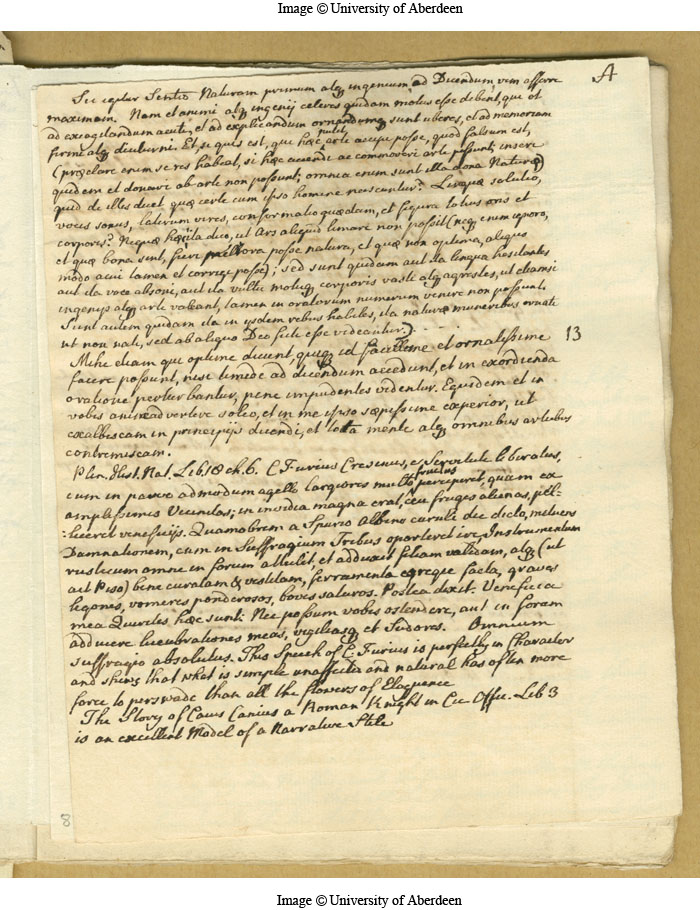 Image © University of Aberdeen
A
Sic igitur Sentio Naturam primum atq ingenium ad Dicendum vim afferre
maximam. Nam et animi atq ingenij celeres quidam motus esse debent, qui et
ad excogitandum acuti, et ad explicandum ornandumq sunt uberes, et ad memoriam
firmi atq diuturni. Et si quis est, qui hæc putet arte accipi posse, quod falsum est,
(præclare enim se res habeat, si hæc accendi ac commoveri arte possunt; inseri
quidem et donari ab arte non possunt; omnia enim sunt illa dona Naturæ)
quid de illis dicet quæ certe cum ipso homine nascuntur? Linguæ solutio,
vocis sonus, laterum vires, conformatio quædam, et figura totius oris et
corporis? Nequæ hæc ita dico, ut Ars aliquid limare non possit (neq enim ignoro,
et quæ bona sunt, fieri meliora posse natura, et quæ non optima, aliquo
modo acui tamen et corrigi posse); sed sunt quidam aut ita lingua hesitantes
aut ita voce absoni, aut ita vultu motuq corporis vasti atq agrestes, ut etiamsi
ingenijs atq arte valeant, tamen in oratorum numerum venire non possunt.
Sunt autem quidam ita in ijsdem rebus habiles, ita naturæ muneribus ornati
ut non nati, sed ab aliquo Deo ficti esse videantur.
13
Mihi etiam qui optime dicunt, quiq id facillime et ornatissime
facere possunt, nisi timide ad dicendum accedunt, et in exordienda
oratione perturbantur, pene impudentes videntur. Equidem et in
vobis animadvertere soleo, et in me ipso sæpissime experior, ut
exalbescam in principijs dicendi, et tota mente atq omnibus artubus
contremiscam.
Plin. Hist. Nat. Lib. 18 ch. 6. C Furius Cresinus, e Servitute liberatus,
cum in parvo admodum agello largiores multo fructus perciperet, quam ex
amplissimis Vicinitas; in invidia magna erat, ceu fruges alienas, pel-
:liceret veneficijs. Quamobrem a Spurio Albino curuli die dicto, metuens
Damnationem, cum in Suffragium Tribus oporteret ire, Instrumentum
rusticum omne in forum attulit, et adduxit filiam validam, atq (ut
ait Piso) bene curatam & vestitam, ferramenta egregie facta, graves
ligones, vomeres ponderosos, boves saturos. Postea dixit. Veneficia
mea Quirites hæc sunt: Nec possum vobis ostendere, aut in foram
adducere lucubrationes meas, vigiliasq et Sudores. Omnium
suffragio absolutus. This Speech of C: Furius is perfectly in Character
and shews that what is simple unaffected and natural has often more
force to perswade than all the flowers of Eloquence
The Story of Caius Canius a Roman Knight in Cic Offic. Lib 3
is an excellent Model of a Narrative Stile
8
Image © University of Aberdeen